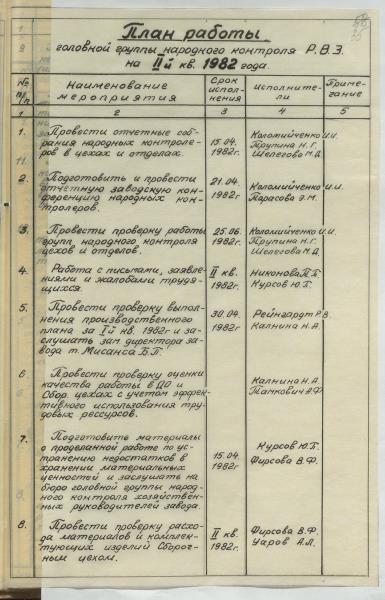 План работы
головной группы народного контроля Р.В.З.
на II й кв. 1982 года.
№ п/п Наименование мероприятия Срок исполнения Исполнители Примечание
1 2 3 4 5
1. Провести отчетные соб-
рания народных контроле-
ров в цехах и отделах.
15.04.
1982г.
Коломийченко И.И.
Трупина Н.Г.
Шелегова М.Д.
2. Подготовить и провести
отчетную заводскую кон-
ференцию народных кон-
тролеров.
21.04.
1982г.
Коломийченко И.И.
Тарасова Э.М.
3. Провести проверку работы
групп народного контроля
цехов и отделов.
25.06.
1982г.
Коломийченко И.И.
Трупина Н.Г.
Шелегова М.Д.
4. Работа с письмами, заявле-
ниями и жалобами трудя-
щихся.
II кв.
1982г.
Никонова П.Б.
Курсов Ю.Г.
5. Провести проверку выпол-
нения производственного
плана за I й кв. 1982г и за-
слушать зам. директора за-
вода т. Мисанса Б.П.
30.04.
1982г
Рейнгардт Р.В.
Калнина Н.А.
6 Провести проверку оценки
качества работы в ДО и
Сбор. цехах с учетом эффек-
тивного использования тру-
довых рессурсов.
Калнина Н.А.
А.Ф.
7. Подготовите материалы
о проделанной работе по ус-
транению недостатков в
хранении материальных
ценностей и заслушать на
бюро головной группы народ-
ного контроля хозяйствен-
ных руководителей завода.
15.04.
1982г.
Курсов Ю.Г.
Фирсова В.Ф.
8. Провести проверку расхо-
да материалов и комплек-
тующих изделий Сбороч-
ным цехом.
II кв.
1982г.
Фирсова В.Ф.
Уаров А.Л.